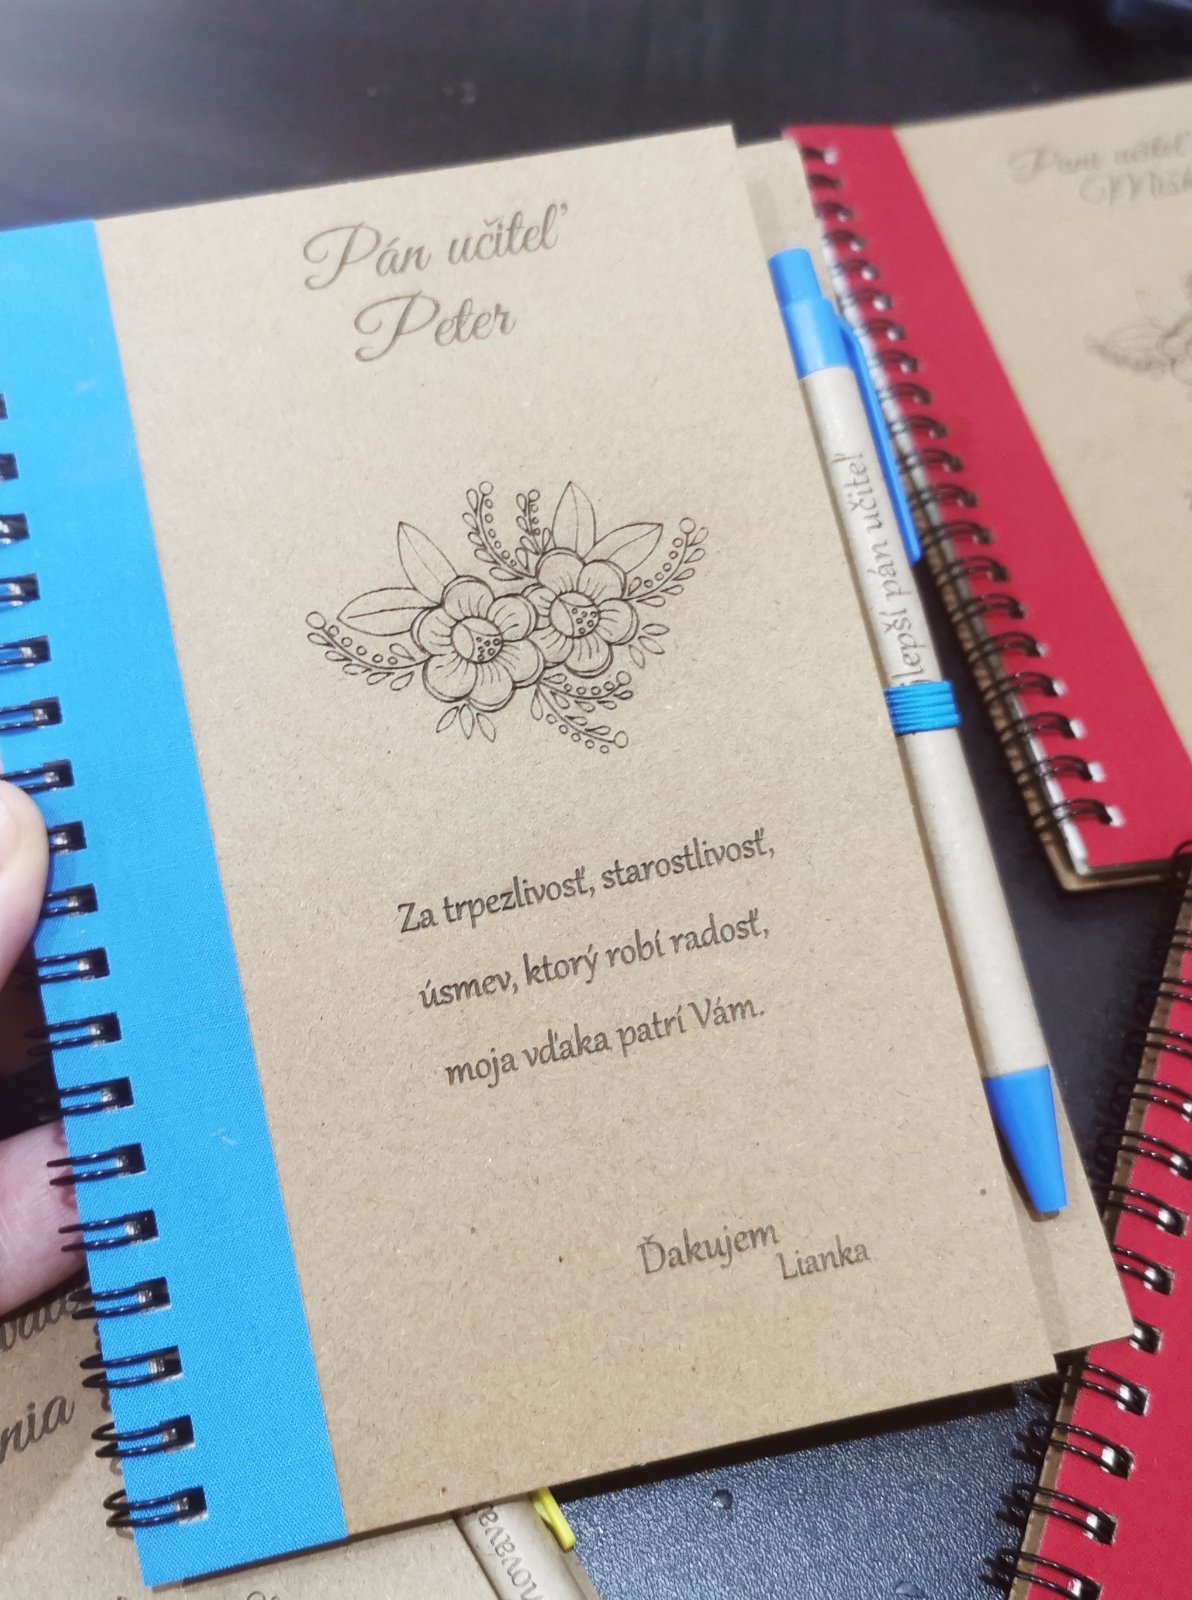 Pán učiteľ
Peter
Za trpezlivosť, starostlivosť,
úsmev, ktorý robí radosť,
moja vďaka patrí Vám.
Ďakujem
Lianka
lepší pán učiteľ
Pán učiteľ